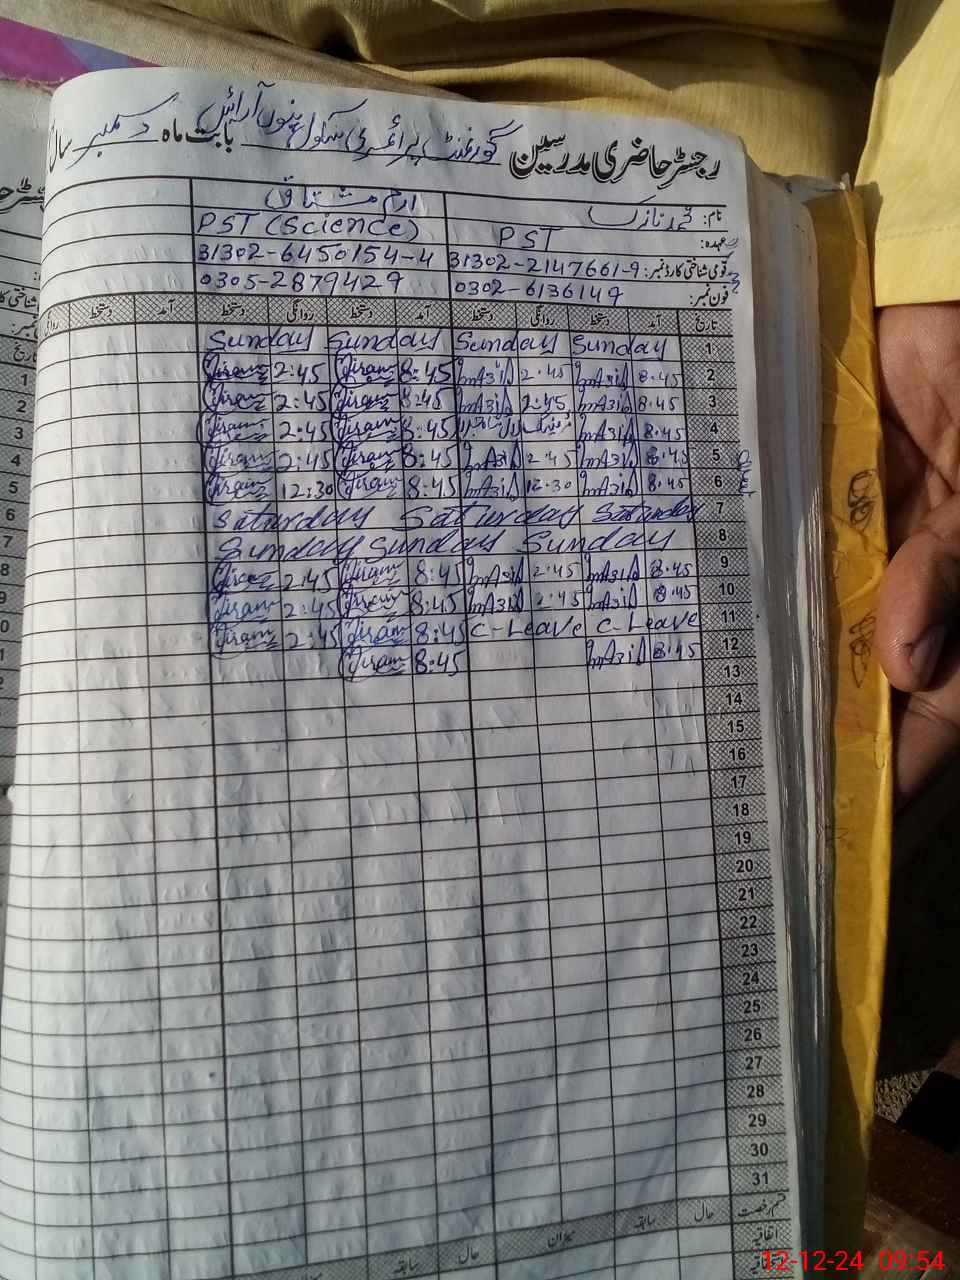 رجسٹر حاضری مدرسین گورنمنٹ پرائمری سکول پنوں آرائیں بابت ماہ دسمبر سال
نام: محمد نازک ارم مشتاق
عہدہ: PST PST (Science)
قومی شناختی کارڈ نمبر: 31302-2147661-9 31302-6450154-4
فون نمبر: 0302-6136149 0305-2879429
تاریخ آمد دستخط روانگی دستخط آمد دستخط روانگی دستخط آمد دستخط روانگی
1 Sunday Sunday Sunday Sunday
2 8.45 2.45 8:45 2:45
3 8.45 2:45 8:45 2:45
4 8.45 8:45 2:45
5 8.45 2.45 8:45 2:45
6 8.45 12.30 8:45 12:30
7 Saturday Saturday Saturday
8 Sunday Sunday Sunday
9 8.45 2.45 8:45 2:45
10 8.45 2.45 8:45 2:45
11 C-Leave C-Leave 8:45 2:45
12 8.45 8:45
13
14
15
16
17
18
19
20
21
22
23
24
25
26
27
28
29
30
31
قسم رخصت حال سابقہ میزان حال سابقہ
اتفاقیہ
12-12-24 09:54